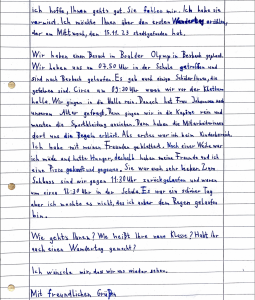 ich hoffe, Ihnen geht's gut. Sie fehlen mir. Ich habe sie
vermisst. Ich möchte Ihnen über den ersten Wandertag erzählen,
der am Mittwoch, dem 15.11.23 stattgefunden hat.
Wir haben einen Besuch in Boulder Olymp in Bexbach geplant.
Wir haben uns um 07.50 Uhr in der Schule getroffen und
sind nach Bexbach gelaufen. Es gab auch einige Schüler/innen, die
gefahren sind. Circa um 09:30 Uhr waren wir vor der Kletter
halle. Wir gingen in die Halle rein. Danach hat Frau
unserem Alter gefragt. Dann gingen wir in die Kabine rein und
mussten die Sportkleidung anziehen. Dann haben die Mitarbeiterinnen
dort uns die Regeln erklärt. Als erstes war ich beim Kinderbereich.
Ich habe mit meinen Freunden geklettert. Nach einer Weile war
ich müde und hatte Hunger, deshalb haben meine Freunde und ich
eine Pizza gekauft und gegessen. Sie war auch sehr lecker. Zum
Schluss sind wir gegen 11:30 Uhr zurückgelaufen und waren
um circa 12:30 Uhr in der Schule. Es war ein schöner Tag
aber ich mochte es nicht, dass ich unter dem Regen gelaufen
bin.
Wie geht's Ihnen? Wie heißt Ihre neue Klasse? Habt ihr
auch einen Wandertag gemacht?
Ich wünsche mir, dass wir uns wieder sehen.
Mit freundlichen Grüßen